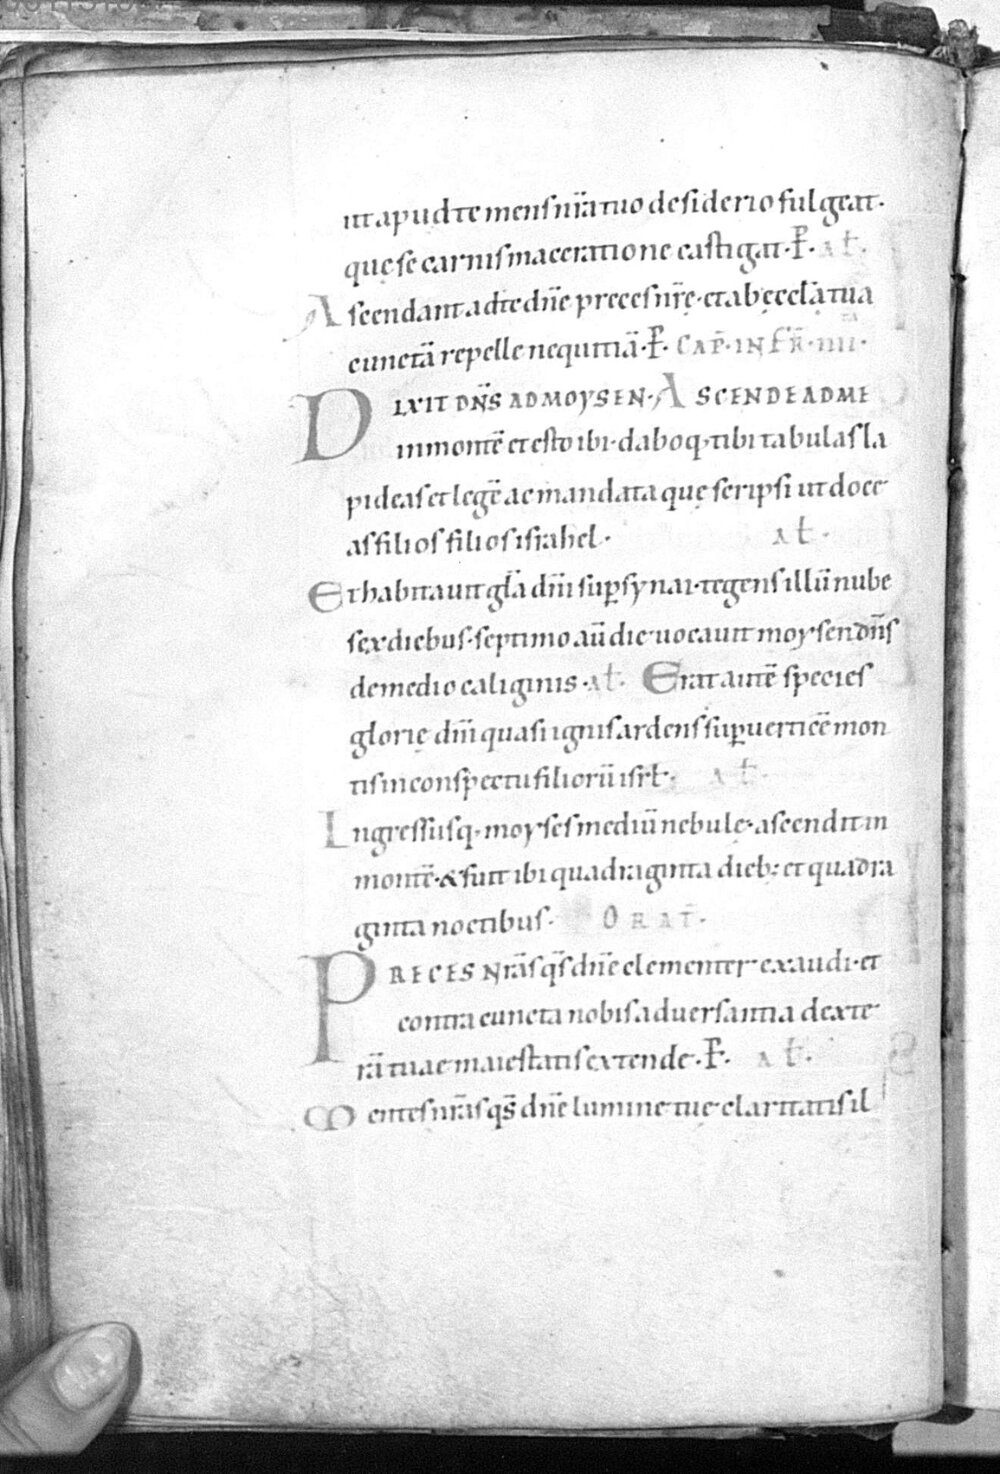 ut apud te mens nr̄a tuo desiderio fulgeat·
quę se carnis maceratione castigat· P̄· at̄·
Ascendant ad te dn̄e preces nr̄ę· et ab ęccl̄a tua
cunctā repelle nequitiā· P̄· CAP̄· IN FR̄· IIII·
DIXIT DN̄S AD MOYSEN· ASCENDE AD ME
in montē et esto ibi· daboq· tibi tabulas la
pideas et legē ac mandata quę scripsi ut doce
as filios filios israhel· at̄·
Et habitauit gl̄a dn̄i sup synai· tegens illū nube
sex diebus· septimo aū die uocauit moysen dn̄s
de medio caliginis· at̄· Erat autē species
glorię dn̄i quasi ignis ardens sup uerticē mon
tis in conspectu filiorū isrł· at̄·
Ingressusq· moyses mediū nebulę· ascendit in
montē· & fuit ibi quadraginta dieb; et quadra
ginta noctibus· ORAT̄·
PRECES Nr̄as qs̄ dn̄e clementer exaudi· et
contra cuncta nobis aduersantia dexte
rā tuae maiestatis extende· P̄· at̄·
Mentes nr̄as qs̄ dn̄e lumine tuę claritatis il